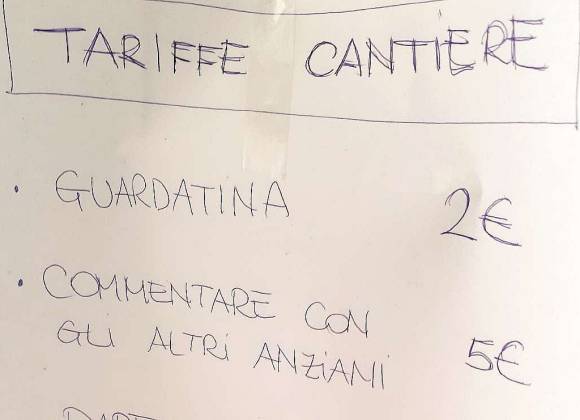 TARIFFE CANTIERE
• GUARDATINA 2€
• COMMENTARE CON
GLI ALTRI ANZIANI 5€